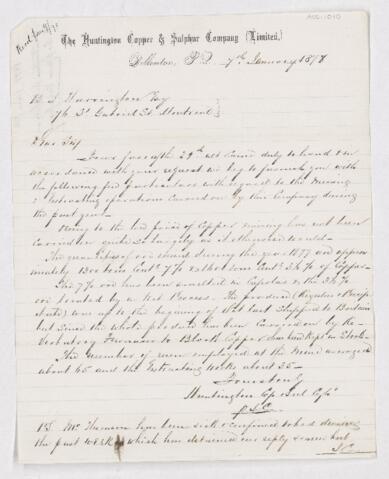 Recd Jan 9/78
ACC-1010
The Huntington Copper & Sulphur Company (Limited,)
Bolton, P.Q. 7th January 1878
B. J. Harrington Esq
76 St Gabriel St Montreal
Dear Sir
Your favor of the 29th ult came duly to hand & in
accordance with your request we beg to furnish you with
the following few particulars with regard to the Mining
& Extracting operations carried on by this Company during
the past year
Owing to the low price of Copper mining has not been
carried on quite so largely as it otherwise would
The quantities of ore raised during the year 1877 was approx
imately 1300 tons Contg 7% & tons Contg 3½% of Copper
The 7% ore has been smelted in Cupolas & the 3½%
ore treated by a Wet Process. The produce (Regulus & Precip
itate) was up to the beginning of last Shipped to Britain
but since the whole produce has been carried on by Re-
verberatory Furnaces to Copper
The number of men employed at the Mine averaged
about 65 and the Extracting Works about 35
Yours truly
Huntington Cop & Sul Co
P.S. Mr Thomson has been sick & confined to bed during
the past week which has detained our reply